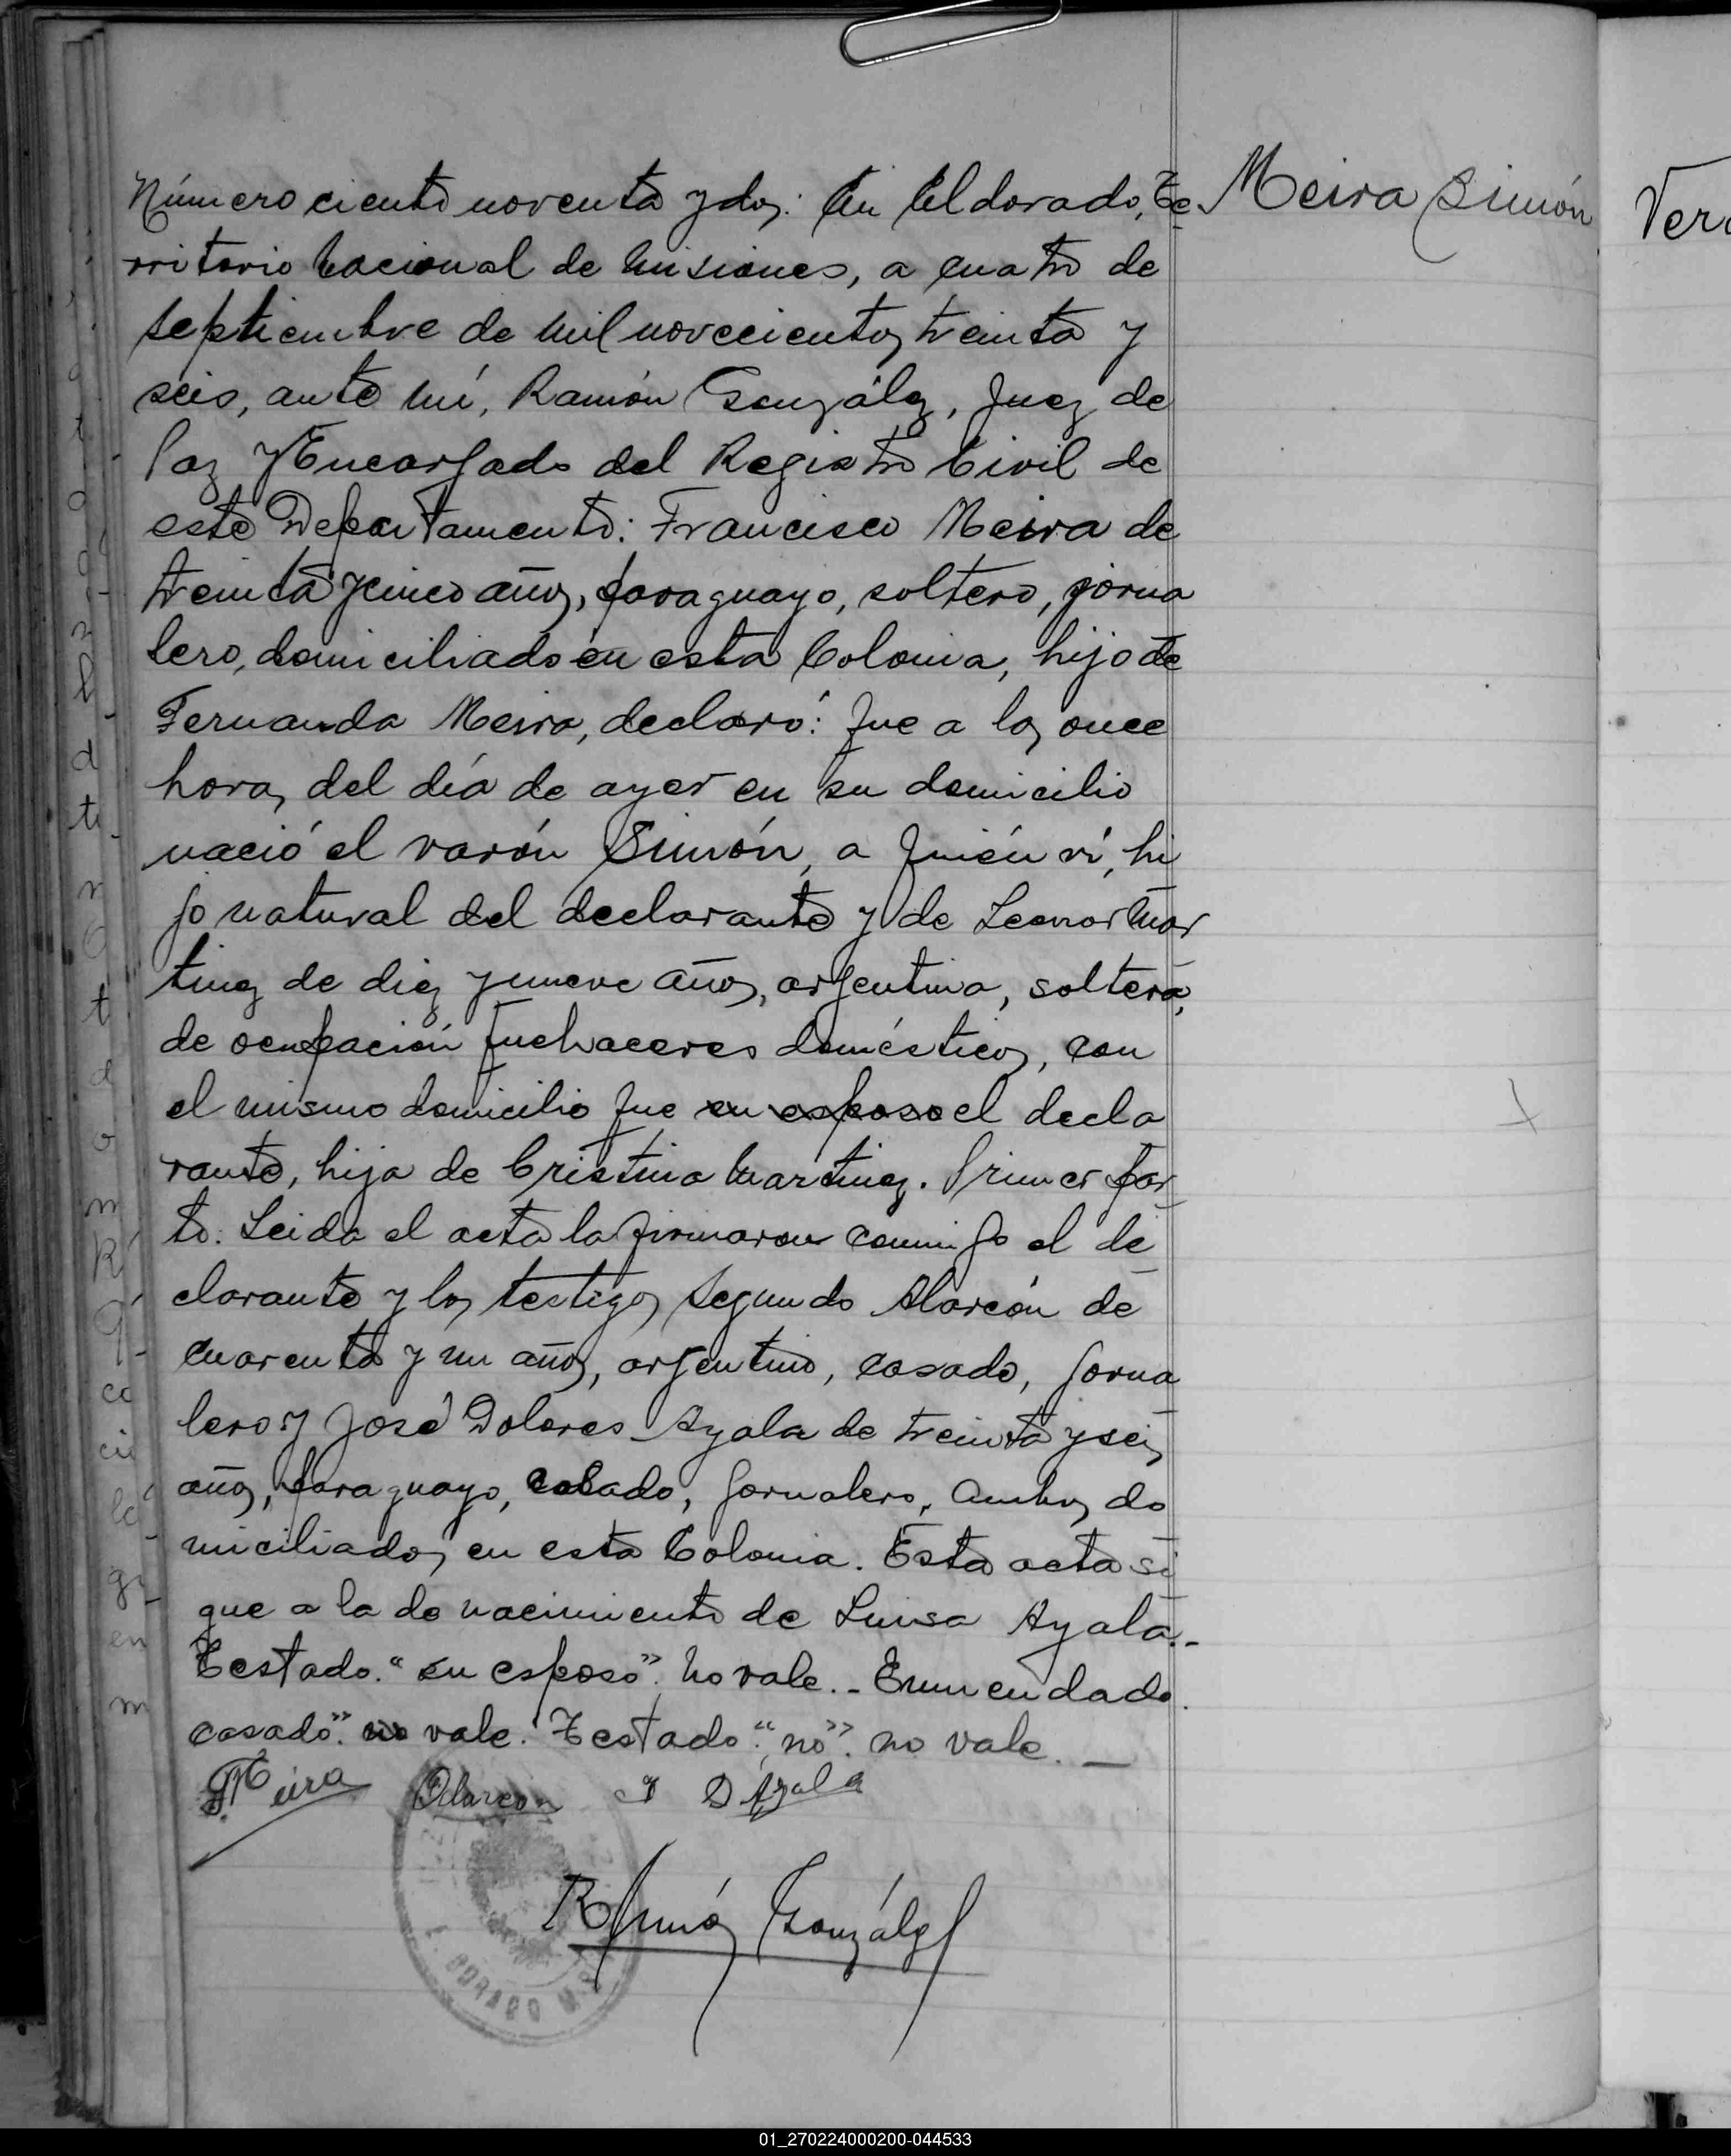 Número ciento noventa y dos: En Eldorado, Te
Meira Simón
rritorio Nacional de Misiones, a cuatro de
septiembre de mil novecientos treinta y
seis, ante mí, Ramón González, Juez de
Paz y Encargado del Registro Civil de
este Departamento: Francisco Meira de
treinta y cinco años, paraguayo, soltero, jorna
lero, domiciliado en esta Colonia, hijo de
Fernanda Meira, declaró: que a las once
horas del día de ayer en su domicilio
nació el varón Simón, a quién ví, hi
jo natural del declarante y de Leonor Mar
tinez de diez y nueve años, argentina, soltera,
de ocupación quehaceres domésticos, con
el mismo domicilio que su esposo el decla
rante, hija de Cristina Martinez. Primer par
to. Leida el acta la firmaron conmigo el de
clarante y los testigos Segundo Alarcón de
cuarenta y un años, argentino, casado, jorna
lero y José Dolores Ayala de treinta y seis
años, paraguayo, casado, jornalero, ambos do
miciliados en esta Colonia. Esta acta si
gue a la de nacimiento de Luisa Ayala.-
Testado: "su esposo": no vale.- Enmendado.
casado": no vale. Testado: "no": no vale. —
F. Meira Alarcon J D Ayala
Ramón González
Ver
01_270224000200-044533